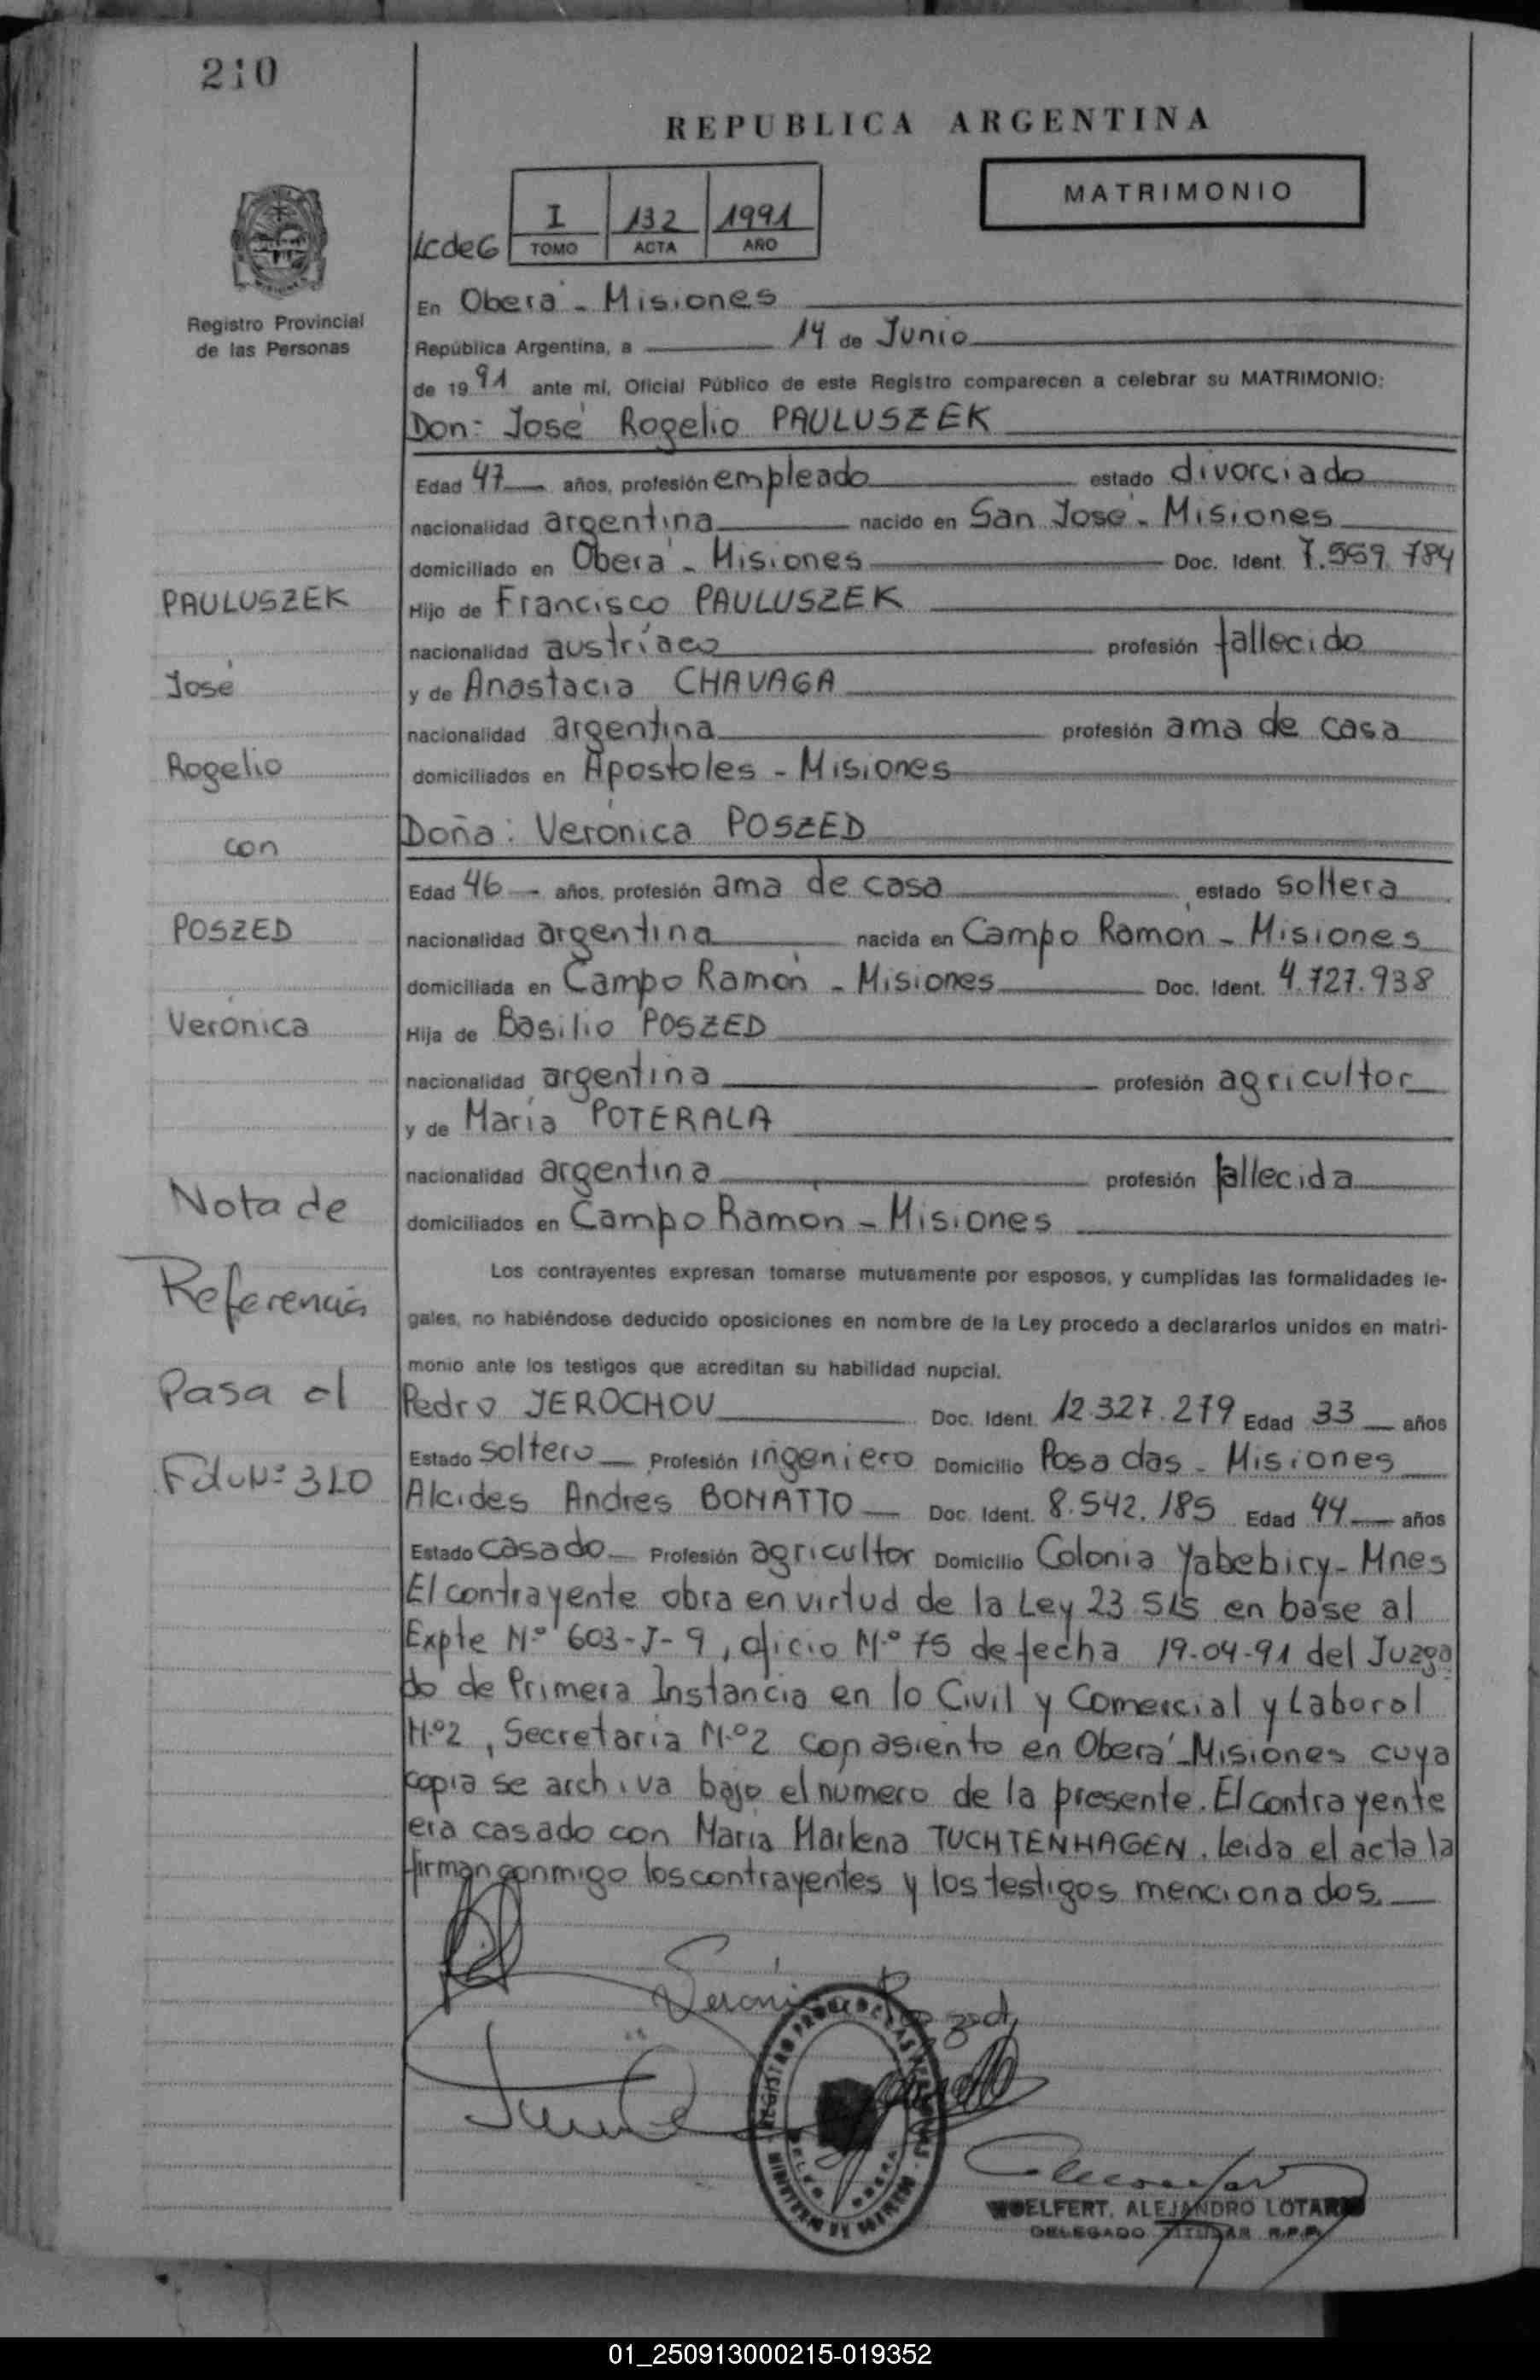 210
REPUBLICA ARGENTINA
MATRIMONIO
I 132 1991
LcdeG TOMO ACTA AÑO
Registro Provincial
de las Personas
En Oberá - Misiones
República Argentina, a 14 de Junio
de 1991 ante mí, Oficial Público de este Registro comparecen a celebrar su MATRIMONIO:
Don: José Rogelio PAULUSZEK
Edad 47 años, profesión empleado estado divorciado
nacionalidad argentina nacido en San José - Misiones
domiciliado en Oberá - Misiones Doc. Ident. 7.559.784
PAULUSZEK
Hijo de Francisco PAULUSZEK
nacionalidad austríaco profesión fallecido
José
y de Anastacia CHAVAGA
nacionalidad argentina profesión ama de casa
Rogelio
domiciliados en Apostoles - Misiones
con
Doña: Verónica POSZED
Edad 46 años, profesión ama de casa estado soltera
POSZED
nacionalidad argentina nacida en Campo Ramón - Misiones
domiciliada en Campo Ramón - Misiones Doc. Ident. 4.727.938
Verónica
Hija de Basilio POSZED
nacionalidad argentina profesión agricultor
y de María POTERALA
nacionalidad argentina profesión fallecida
Nota de
domiciliados en Campo Ramon - Misiones
Referencia
Los contrayentes expresan tomarse mutuamente por esposos, y cumplidas las formalidades le-
gales, no habiéndose deducido oposiciones en nombre de la Ley procedo a declararlos unidos en matri-
monio ante los testigos que acreditan su habilidad nupcial.
Pasa al
Pedro JEROCHOV Doc. Ident. 12.327.279 Edad 33 años
Estado soltero Profesión ingeniero Domicilio Posadas - Misiones
Fdo Nº 310
Alcides Andres BONATTO Doc. Ident. 8.542.185 Edad 44 años
Estado casado Profesión agricultor Domicilio Colonia Yabebiry - Mnes
El contrayente obra en virtud de la Ley 23.515 en base al
Expte N.º 603-J-9, oficio N.º 75 de fecha 19-04-91 del Juzga
do de Primera Instancia en lo Civil y Comercial y Laboral
N.º2, Secretaria N.º2 con asiento en Oberá - Misiones cuya
copia se archiva bajo el numero de la presente. El contrayente
era casado con María Marlena TUCHTENHAGEN. Leida el acta la
firman conmigo los contrayentes y los testigos mencionados.
WOELFERT, ALEJANDRO LOTARIO
DELEGADO TITULAR R.P.P.
01_250913000215-019352